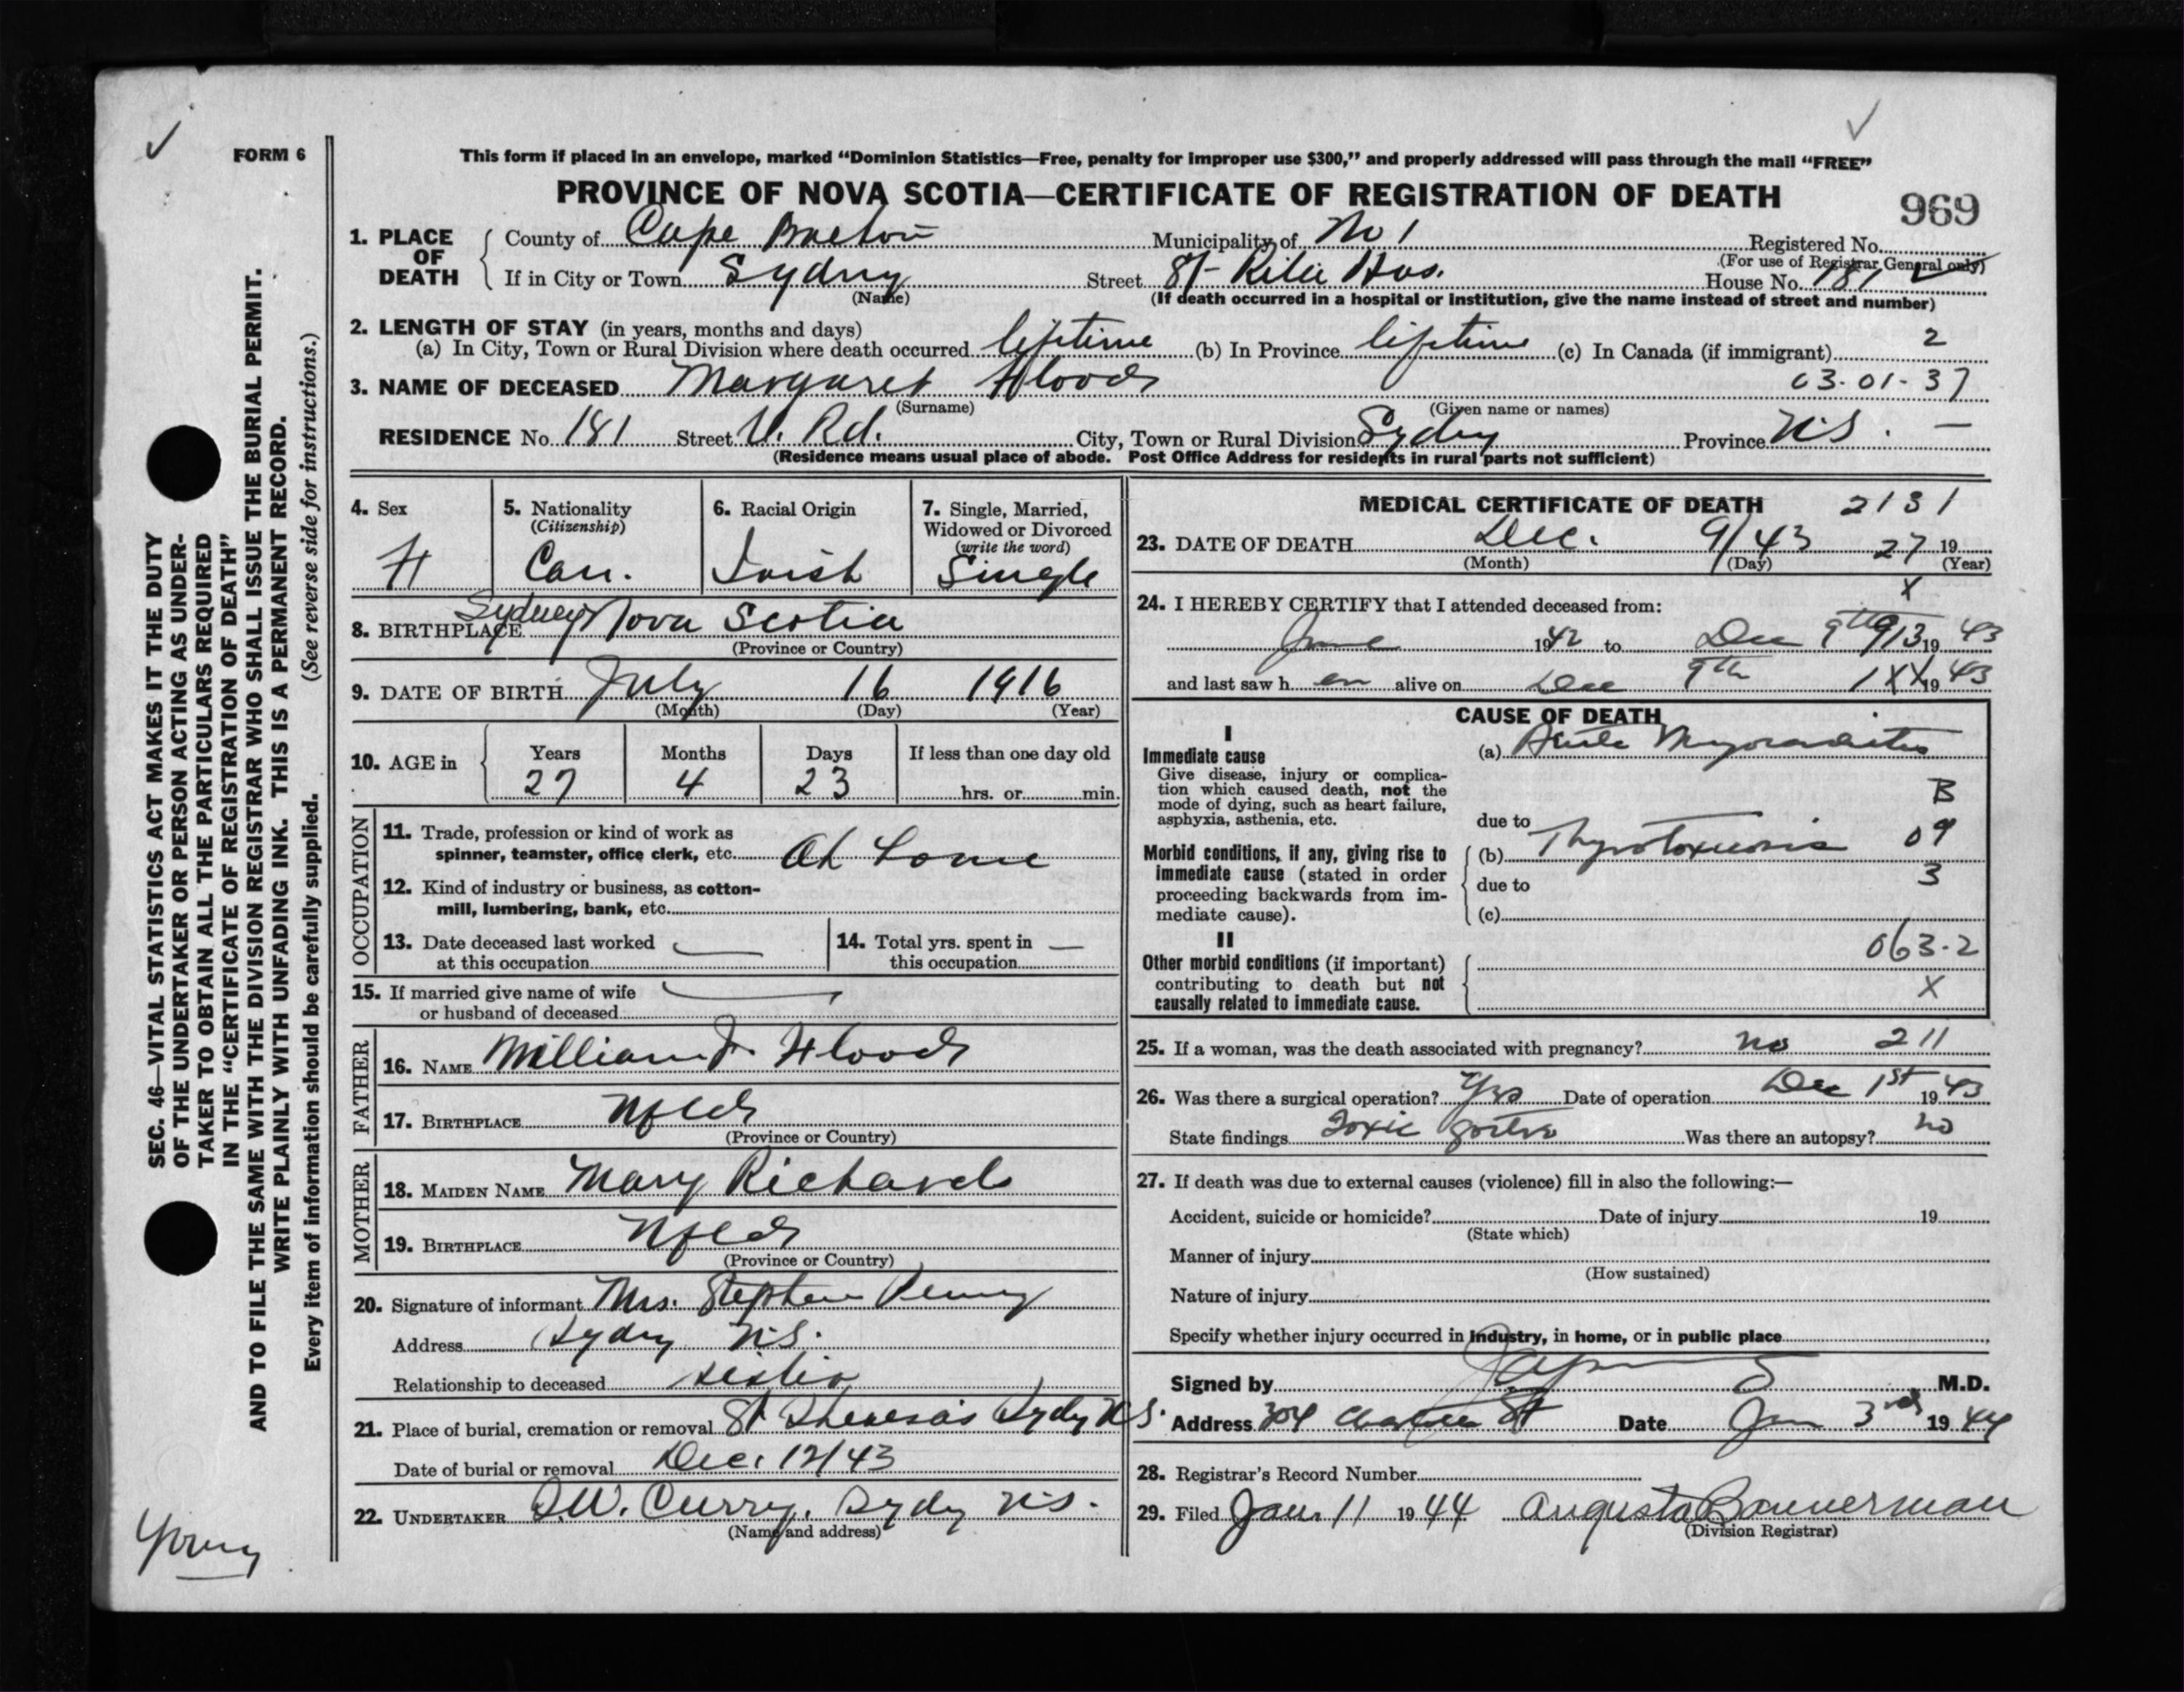 FORM 6
This form if placed in an envelope, marked “Dominion Statistics—Free, penalty for improper use $300,” and properly addressed will pass through the mail “FREE”
PROVINCE OF NOVA SCOTIA—CERTIFICATE OF REGISTRATION OF DEATH
969
1. PLACE OF DEATH
County of Cape Breton Municipality of No 1 Registered No.
(For use of Registrar General only)
If in City or Town Sydney Street St Rita Hos. House No. 181
(Name) (If death occurred in a hospital or institution, give the name instead of street and number)
2. LENGTH OF STAY (in years, months and days)
(a) In City, Town or Rural Division where death occurred lifetime (b) In Province lifetime (c) In Canada (if immigrant) 2
3. NAME OF DECEASED Margaret Flood 03-01-37
(Surname) (Given name or names)
RESIDENCE No 181 Street V. Rd. City, Town or Rural Division Sydney Province N.S. —
(Residence means usual place of abode. Post Office Address for residents in rural parts not sufficient)
4. Sex F
5. Nationality (Citizenship) Can.
6. Racial Origin Irish
7. Single, Married, Widowed or Divorced (write the word) Single
8. BIRTHPLACE Sydney Nova Scotia
(Province or Country)
9. DATE OF BIRTH July 16 1916
(Month) (Day) (Year)
10. AGE in Years 27 Months 4 Days 23 If less than one day old hrs. or min.
OCCUPATION
11. Trade, profession or kind of work as
spinner, teamster, office clerk, etc. At home
12. Kind of industry or business, as cotton-
mill, lumbering, bank, etc.
13. Date deceased last worked
at this occupation
14. Total yrs. spent in
this occupation —
15. If married give name of wife
or husband of deceased
FATHER
16. NAME William J. Flood
17. BIRTHPLACE Nfld
(Province or Country)
MOTHER
18. MAIDEN NAME Mary Richards
19. BIRTHPLACE Nfld
(Province or Country)
20. Signature of informant Mrs. Stephen Penny
Address Sydney N.S.
Relationship to deceased sister
21. Place of burial, cremation or removal St Theresa's Sydney N.S.
Date of burial or removal Dec. 12/43
22. UNDERTAKER Curry, Sydney N.S.
(Name and address)
MEDICAL CERTIFICATE OF DEATH 2131
23. DATE OF DEATH Dec. 9/43 27 19
(Month) (Day) (Year)
X
24. I HEREBY CERTIFY that I attended deceased from:
June 1942 to Dec 9th 913 1943
and last saw h er alive on Dec 9th 1XX 1943
CAUSE OF DEATH
I
Immediate cause
Give disease, injury or complica-
tion which caused death, not the
mode of dying, such as heart failure,
asphyxia, asthenia, etc.
(a) Acute Myocarditis
B
due to
Morbid conditions, if any, giving rise to
immediate cause (stated in order
proceeding backwards from im-
mediate cause).
(b) Thyrotoxicosis 09
due to 3
(c)
II
Other morbid conditions (if important)
contributing to death but not
causally related to immediate cause.
063-2
X
25. If a woman, was the death associated with pregnancy? no 211
26. Was there a surgical operation? Yes Date of operation Dec 1st 1943
State findings Toxic goitre Was there an autopsy? no
27. If death was due to external causes (violence) fill in also the following:—
Accident, suicide or homicide? Date of injury 19
(State which)
Manner of injury
(How sustained)
Nature of injury
Specify whether injury occurred in industry, in home, or in public place
Signed by M.D.
Address 304 Charlotte St Date Jan 3rd 1944
28. Registrar's Record Number
29. Filed Jan. 11 1944 Augusta Bannerman
(Division Registrar)
SEC. 46—VITAL STATISTICS ACT MAKES IT THE DUTY
OF THE UNDERTAKER OR PERSON ACTING AS UNDER-
TAKER TO OBTAIN ALL THE PARTICULARS REQUIRED
IN THE “CERTIFICATE OF REGISTRATION OF DEATH”
AND TO FILE THE SAME WITH THE DIVISION REGISTRAR WHO SHALL ISSUE THE BURIAL PERMIT.
WRITE PLAINLY WITH UNFADING INK. THIS IS A PERMANENT RECORD.
Every item of information should be carefully supplied. (See reverse side for instructions.)
Young